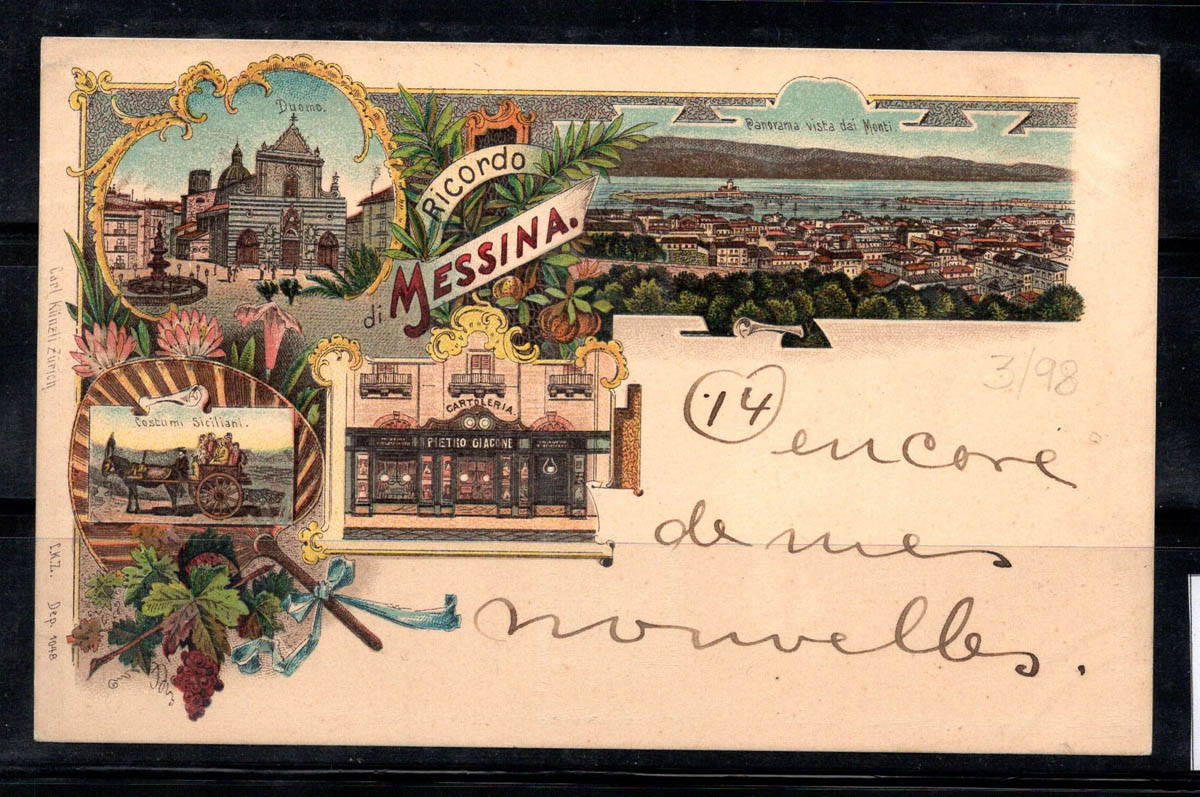 Duomo.
Panorama vista dai Monti
Ricordo
di MESSINA.
Costumi Siciliani.
CARTOLERIA
PIETRO GIACONE
Carl Künzli Zürich
C.K.Z. Dep. 1048
3/98
14
encore
de mes
nouvelles.